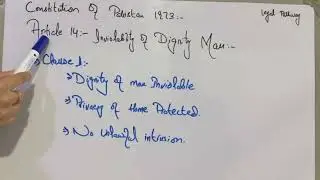 Constitution of Pakistan 1973:-
Legal Pathway
Article 14:- Inviolability of Dignity Man:-
Clause 1:-
→ Dignity of man Inviolable
→ Privacy of Home Protected.
→ No unlawful intrusion.